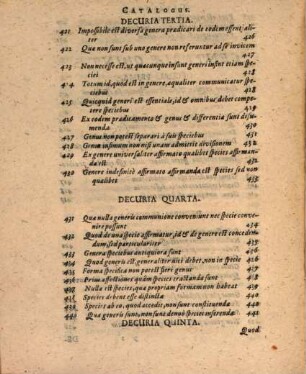 CATALOGUS.
DECURIA TERTIA.
421 Impossibile est diversa genera praedicari de eodem essentialiter 426
422 Quae non sunt sub uno genere non referuntur ad se invicem
423 Non necesse est, ut quaecunque insunt generi insint etiam speciei 428
424 Totum id, quod est in genere, aequaliter communicatur speciebus 428
425 Quicquid generi est essentiale, id & omnibus debet competere speciebus 429
426 Ex eodem praedicamento & genus & differentia sunt desumenda
427 Genus non potest separari à suis speciebus 431
428 Genus infimum non nisi unam admittit divisionem 432
429 Ex genere universaliter affirmato quaelibet species affirmanda est
430 Genere indefinitè affirmato affirmanda est species sed non quaelibet
DECURIA QUARTA.
431 Quae nulla generis communione conveniunt nec specie convenire possunt
432 Quod de una specie affirmatur, id & de genere est concedendum, sed particulariter 434
433 Genera speciebus antiquiora sunt 435
434 Quod generis est generaliter dici debet, non in specie 436
435 Forma specifica non potest fieri genus
436 Prius affectiones quàm species tractanda sunt 438
437 Nulla est species, quae propriam formam non habeat 439
438 Species debent esse distinctae 440
439 Species ab eo, quod accedit, non sunt constituendae 441
440 Quae generis sunt, non sunt denuò speciei inserenda 442
DECURIA QUINTA.
Quod